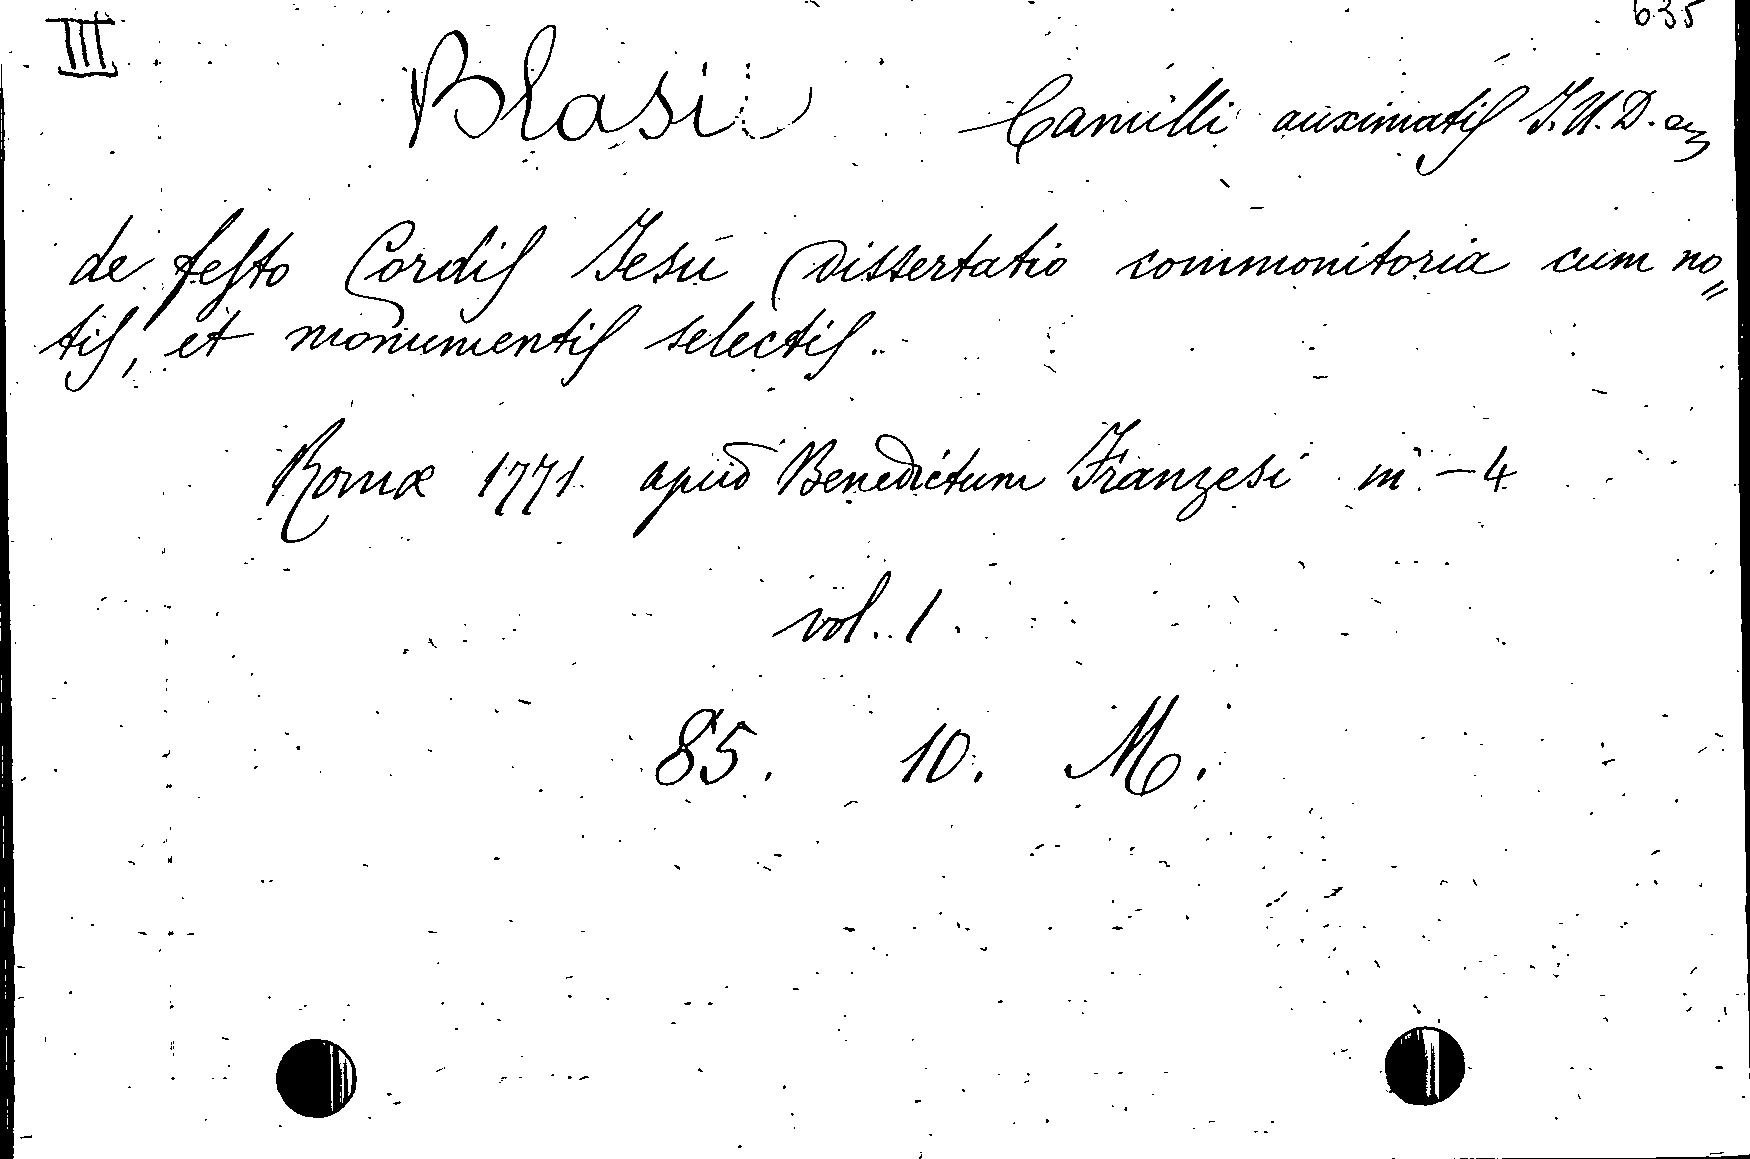 III 635
Blasii Camilli auximatis J.U.D.
de festo Cordis Jesu dissertatio commonitoria cum no=
tis, et monumentis selectis.
Romæ 1771 apud Benedictum Franzesi in - 4
vol. 1.
85. 10. M.